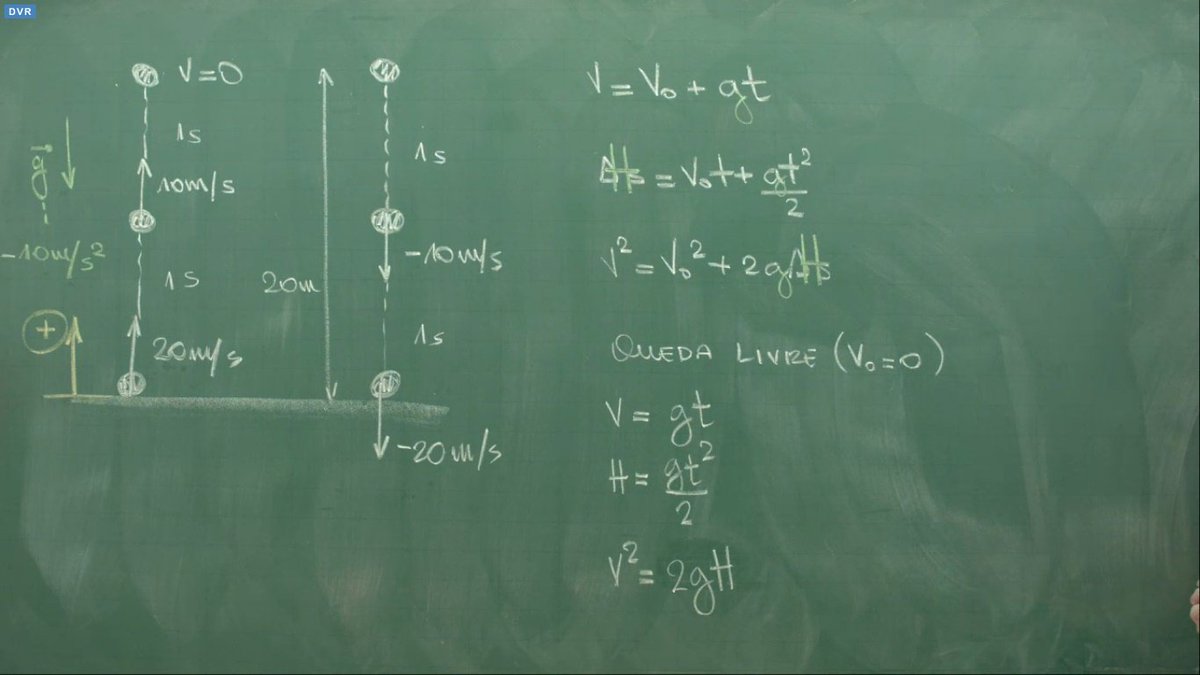 DVR
V=0
1s
10m/s
g⃗
-10m/s²
1s
+
20m/s
20m
1s
-10m/s
1s
-20m/s
V = V₀ + gt
H = V₀t + gt²/2
V² = V₀² + 2gH
QUEDA LIVRE (V₀=0)
V = gt
H = gt²/2
V² = 2gH